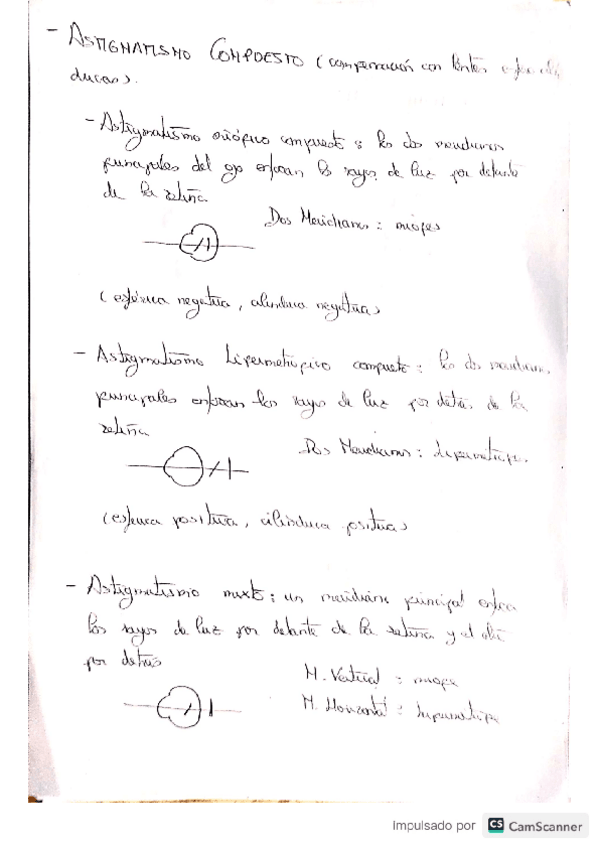 - ASTIGMATISMO COMPUESTO (compensación con lentes esfero cilín
dricas).
- Astigmatismo miópico compuesto: los dos meridianos
principales del ojo enfocan los rayos de luz por delante
de la retina
Dos Meridianos: miopes
(esférica negativa, cilíndrica negativa)
- Astigmatismo hipermetrópico compuesto: los dos meridianos
principales enfocan los rayos de luz por detrás de la
retina
Dos Meridianos: hipermétrope.
(esférica positiva, cilíndrica positiva)
- Astigmatismo mixto: un meridiano principal enfoca
los rayos de luz por delante de la retina y el otro
por detrás
M. Vertical: miope
M. Horizontal: hipermétrope
Impulsado por CS CamScanner